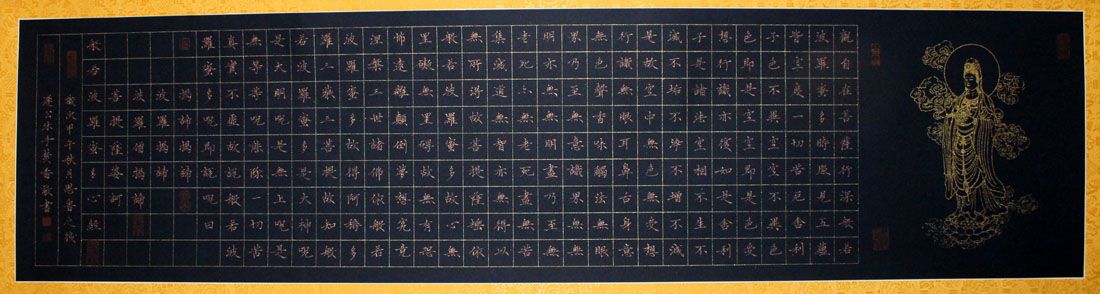 觀自在菩薩行深般若
波羅蜜多時照見五蘊
皆空度一切苦厄舍利
子色不異空空不異色
色即是空空即是色受
想行識亦復如是舍利
子是諸法空相不生不
滅不垢不淨不增不減
是故空中無色無受想
行識無眼耳鼻舌身意
無色聲香味觸法無眼
界乃至無意識界無無
明亦無無明盡乃至無
老死亦無老死盡無苦
集滅道無智亦無得以
無所得故菩提薩埵依
般若波羅蜜多故心無
罣礙無罣礙故無有恐
怖遠離顛倒夢想究竟
涅槃三世諸佛依般若
波羅蜜多故得阿耨多
羅三藐三菩提故知般
若波羅蜜多是大神呪
是大明呪是無上呪是
無等等呪能除一切苦
真實不虛故說般若波
羅蜜多呪即說呪曰
揭諦揭諦
波羅揭諦
波羅僧揭諦
菩提薩婆訶
般若波羅蜜多心經
歲次甲午秋月
沐手焚香敬書